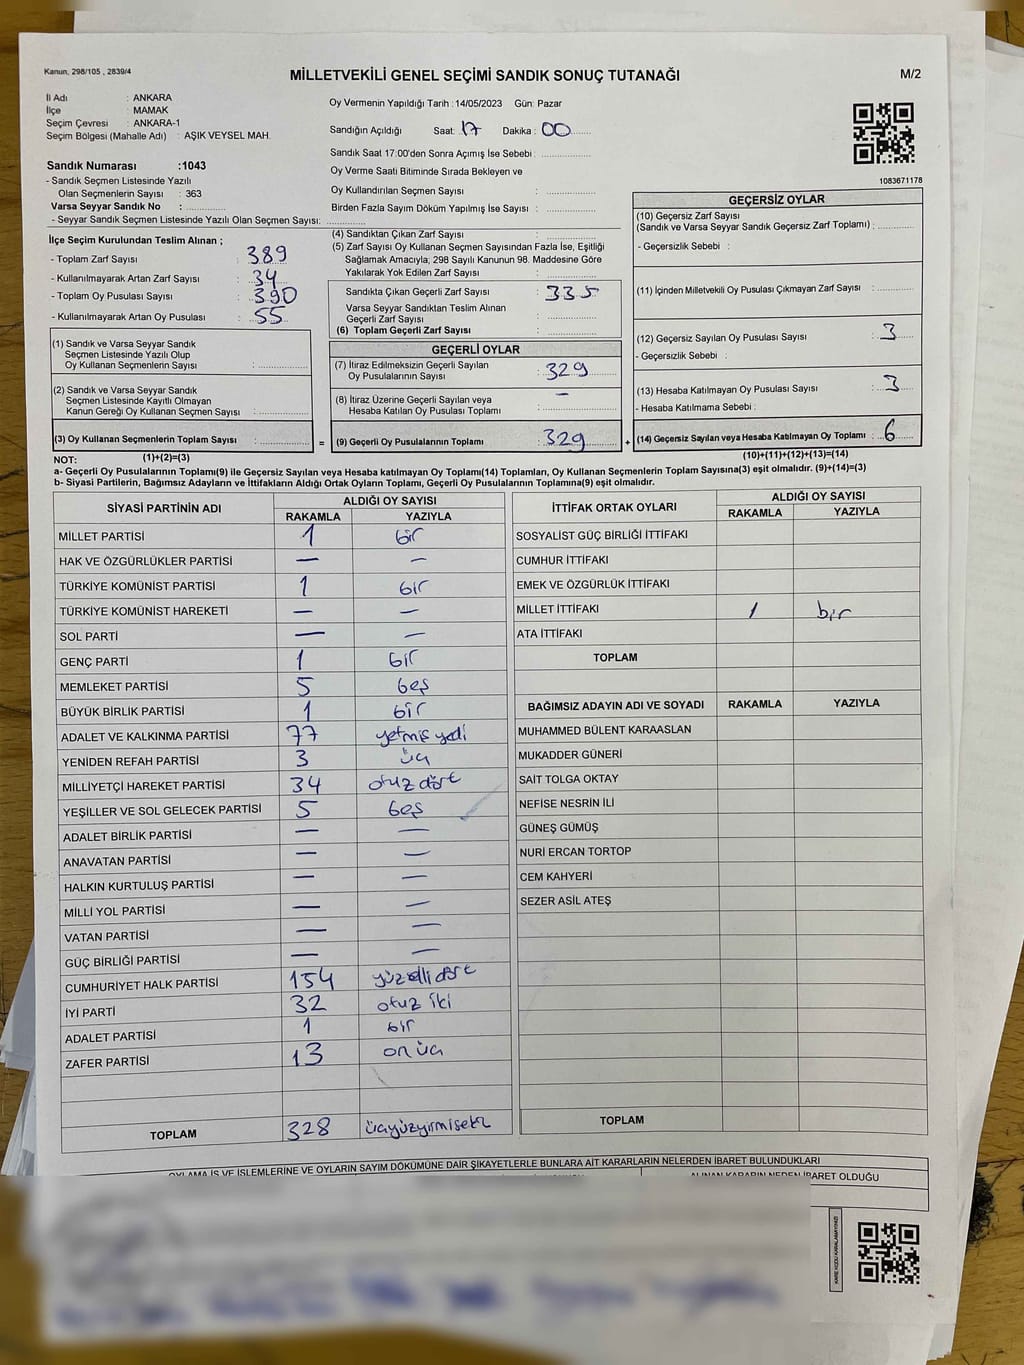 Kanun, 298/105 , 2839/4
MİLLETVEKİLİ GENEL SEÇİMİ SANDIK SONUÇ TUTANAĞI
M/2
İl Adı : ANKARA
İlçe : MAMAK
Seçim Çevresi : ANKARA-1
Seçim Bölgesi (Mahalle Adı) : AŞIK VEYSEL MAH.
Oy Vermenin Yapıldığı Tarih : 14/05/2023 Gün: Pazar
Sandığın Açıldığı Saat: 17 Dakika : 00
Sandık Saat 17:00'den Sonra Açımış İse Sebebi :
Oy Verme Saati Bitiminde Sırada Bekleyen ve
Oy Kullandırılan Seçmen Sayısı :
Birden Fazla Sayım Döküm Yapılmış İse Sayısı :
1083671178
Sandık Numarası :1043
- Sandık Seçmen Listesinde Yazılı
Olan Seçmenlerin Sayısı : 363
Varsa Seyyar Sandık No :
- Seyyar Sandık Seçmen Listesinde Yazılı Olan Seçmen Sayısı:
İlçe Seçim Kurulundan Teslim Alınan ;
- Toplam Zarf Sayısı : 389
- Kullanılmayarak Artan Zarf Sayısı : 34
- Toplam Oy Pusulası Sayısı : 390
- Kullanılmayarak Artan Oy Pusulası : 55
(1) Sandık ve Varsa Seyyar Sandık
Seçmen Listesinde Yazılı Olup
Oy Kullanan Seçmenlerin Sayısı :
(2) Sandık ve Varsa Seyyar Sandık
Seçmen Listesinde Kayıtlı Olmayan
Kanun Gereği Oy Kullanan Seçmen Sayısı :
(3) Oy Kullanan Seçmenlerin Toplam Sayısı : =
(4) Sandıktan Çıkan Zarf Sayısı :
(5) Zarf Sayısı Oy Kullanan Seçmen Sayısından Fazla İse, Eşitliği
Sağlamak Amacıyla; 298 Sayılı Kanunun 98. Maddesine Göre
Yakılarak Yok Edilen Zarf Sayısı :
Sandıkta Çıkan Geçerli Zarf Sayısı : 335
Varsa Seyyar Sandıktan Teslim Alınan
Geçerli Zarf Sayısı :
(6) Toplam Geçerli Zarf Sayısı :
GEÇERLİ OYLAR
(7) İtiraz Edilmeksizin Geçerli Sayılan
Oy Pusulalarının Sayısı : 329
(8) İtiraz Üzerine Geçerli Sayılan veya
Hesaba Katılan Oy Pusulası Toplamı : —
(9) Geçerli Oy Pusulalarının Toplamı : 329 +
GEÇERSİZ OYLAR
(10) Geçersiz Zarf Sayısı
(Sandık ve Varsa Seyyar Sandık Geçersiz Zarf Toplamı) :
- Geçersizlik Sebebi :
(11) İçinden Milletvekili Oy Pusulası Çıkmayan Zarf Sayısı :
(12) Geçersiz Sayılan Oy Pusulası Sayısı : 3
- Geçersizlik Sebebi :
(13) Hesaba Katılmayan Oy Pusulası Sayısı : 3
- Hesaba Katılmama Sebebi :
(14) Geçersiz Sayılan veya Hesaba Katılmayan Oy Toplamı : 6
NOT: (1)+(2)=(3) (10)+(11)+(12)+(13)=(14)
a- Geçerli Oy Pusulalarının Toplamı(9) ile Geçersiz Sayılan veya Hesaba katılmayan Oy Toplamı(14) Toplamları, Oy Kullanan Seçmenlerin Toplam Sayısına(3) eşit olmalıdır. (9)+(14)=(3)
b- Siyasi Partilerin, Bağımsız Adayların ve İttifakların Aldığı Ortak Oyların Toplamı, Geçerli Oy Pusulalarının Toplamına(9) eşit olmalıdır.
SİYASİ PARTİNİN ADI ALDIĞI OY SAYISI
RAKAMLA YAZIYLA
MİLLET PARTİSİ 1 bir
HAK VE ÖZGÜRLÜKLER PARTİSİ — —
TÜRKİYE KOMÜNİST PARTİSİ 1 bir
TÜRKİYE KOMÜNİST HAREKETİ — —
SOL PARTİ — —
GENÇ PARTİ 1 bir
MEMLEKET PARTİSİ 5 beş
BÜYÜK BİRLİK PARTİSİ 1 bir
ADALET VE KALKINMA PARTİSİ 77 yetmiş yedi
YENİDEN REFAH PARTİSİ 3 üç
MİLLİYETÇİ HAREKET PARTİSİ 34 otuz dört
YEŞİLLER VE SOL GELECEK PARTİSİ 5 beş
ADALET BİRLİK PARTİSİ — —
ANAVATAN PARTİSİ — —
HALKIN KURTULUŞ PARTİSİ — —
MİLLİ YOL PARTİSİ — —
VATAN PARTİSİ — —
GÜÇ BİRLİĞİ PARTİSİ — —
CUMHURİYET HALK PARTİSİ 154 yüzelli dört
İYİ PARTİ 32 otuz iki
ADALET PARTİSİ 1 bir
ZAFER PARTİSİ 13 on üç
TOPLAM 328 üçyüzyirmisekz
İTTİFAK ORTAK OYLARI ALDIĞI OY SAYISI
RAKAMLA YAZIYLA
SOSYALİST GÜÇ BİRLİĞİ İTTİFAKI
CUMHUR İTTİFAKI
EMEK VE ÖZGÜRLÜK İTTİFAKI
MİLLET İTTİFAKI 1 bir
ATA İTTİFAKI
TOPLAM
BAĞIMSIZ ADAYIN ADI VE SOYADI RAKAMLA YAZIYLA
MUHAMMED BÜLENT KARAASLAN
MUKADDER GÜNERİ
SAİT TOLGA OKTAY
NEFİSE NESRİN İLİ
GÜNEŞ GÜMÜŞ
NURİ ERCAN TORTOP
CEM KAHYERİ
SEZER ASİL ATEŞ
TOPLAM
OYLAMA İŞ VE İŞLEMLERİNE VE OYLARIN SAYIM DÖKÜMÜNE DAİR ŞİKAYETLERLE BUNLARA AİT KARARLARIN NELERDEN İBARET BULUNDUKLARI
ALINAN KARARIN NEDEN İBARET OLDUĞU
KARE KODU KARALAMAYINIZ!